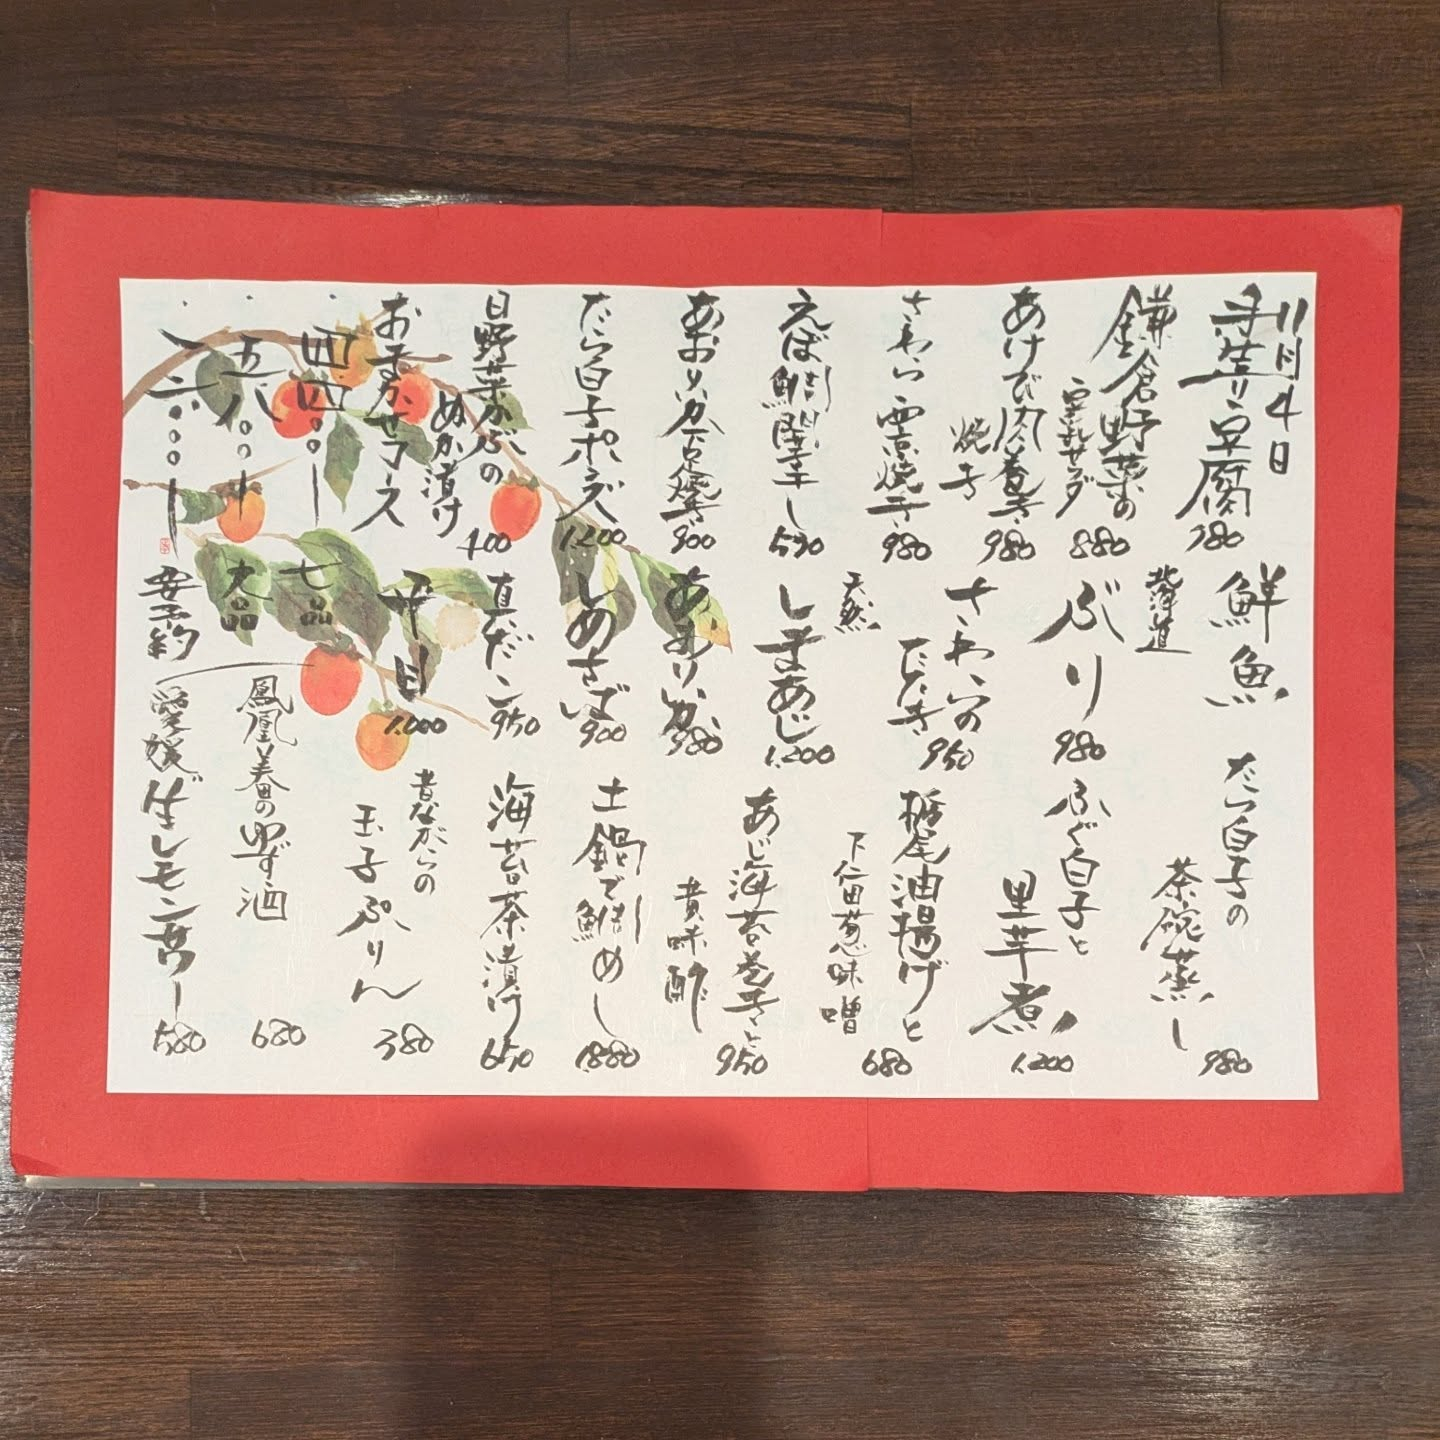 11月4日
手造り豆腐
780
鎌倉野菜の
サラダ
880
あけび肉巻き
焼き
980
さわら西京焼き
980
えぼ鯛開干し
590
あおりいか
900
たら白子ポン
1.200
日野菜かぶの
ぬか漬け
400
おまかせコース
四四〇〇ー
七品
五八〇〇ー
九品
要予約
鮮魚
北海道
ぶり
980
さわらの
たたき
950
天然
しまあじ
1.200
あおりいか
980
しめさば
900
真だこ
950
平目
1.000
たら白子の
茶碗蒸し
980
ふぐ白子と
里芋煮
1.200
栃尾油揚げと
下仁田葱味噌
680
あじ海苔巻きと
黄味酢
950
土鍋で鯛めし
1.880
海苔茶漬け
650
昔ながらの
玉子ぷりん
380
鳳凰美田のゆず酒
680
愛媛生レモンサワー
580